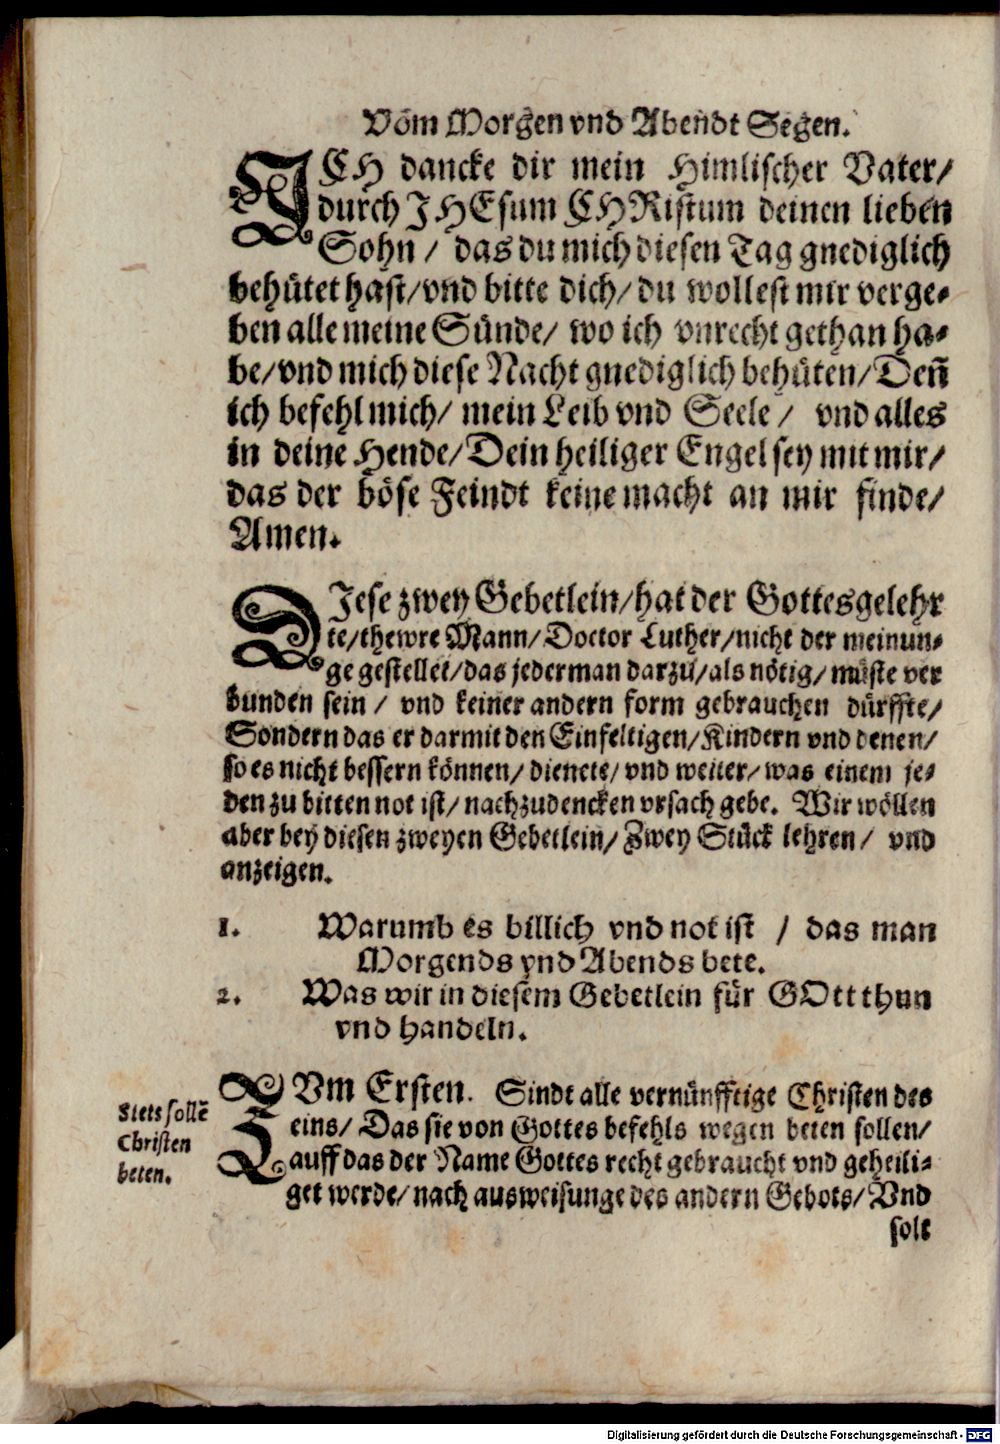 Vom Morgen vnd Abendt Segen.
ICH dancke dir mein Himlischer Vater/
durch JHEsum CHRistum deinen lieben
Sohn / das du mich diesen Tag gnediglich
behütet hast/vnd bitte dich/du wollest mir verge⸗
ben alle meine Sünde/ wo ich vnrecht gethan ha⸗
be/vnd mich diese Nacht gnediglich behüten/Deñ
ich befehl mich/ mein Leib vnd Seele / vnd alles
in deine Hende/Dein heiliger Engel sey mit mir/
das der böse Feindt keine macht an mir finde/
Amen.
DIese zwey Gebetlein/hat der Gottesgelehr
te/thewre Mann/Doctor Luther/nicht der meinun⸗
ge gestellet/das jederman darzu/als nötig/müste ver
bunden sein / vnd keiner andern form gebrauchen dürffte/
Sondern das er darmit den Einfeltigen/Kindern vnd denen/
so es nicht bessern können/dienete/vnd weiter/was einem je⸗
den zu bitten not ist/nachzudencken vrsach gebe. Wir wöllen
aber bey diesen zweyen Gebetlein/Zwey Stück lehren/ vnd
anzeigen.
1. Warumb es billich vnd not ist / das man
Morgends vnd Abends bete.
2. Was wir in diesem Gebetlein für GOtt thun
vnd handeln.
ZVm Ersten. Sindt alle vernünfftige Christen des
eins/ Das sie von Gottes befehls wegen beten sollen/
auff das der Name Gottes recht gebraucht vnd geheili⸗
get werde/nach ausweisunge des andern Gebots/Vnd
solt
Stets sollē
Christen
beten.
Digitalisierung gefördert durch die Deutsche Forschungsgemeinschaft - DFG